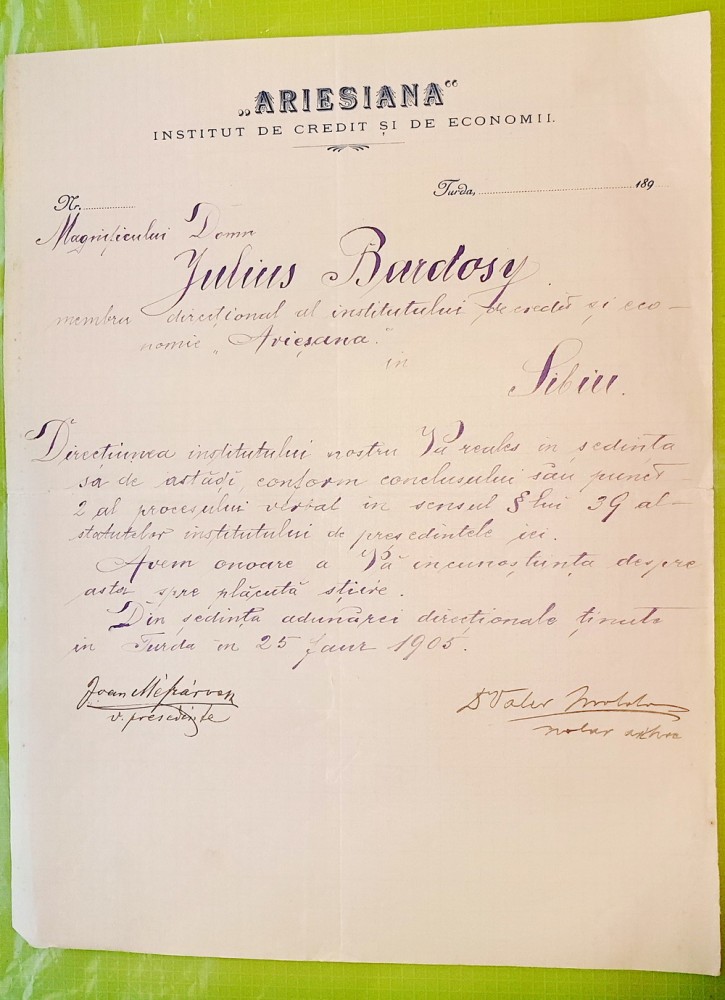 „ARIESIANA“
INSTITUT DE CREDIT ȘI DE ECONOMII.
Nr.
Turda, 189
Magnificului Domn
Julius Bardosy
membru direcțional al institutului de credit și eco-
nomie „Arieșana.”
in
Sibiiu.
Direcțiunea institutului nostru Vă reales in ședința
sa de astăḑi, conform conclusului său punct
2 al procesului verbal in sensul § lui 39 al
statutelor institutului de președintele iei.
Avem onoare a Vă incunoștunța despre
asta spre plăcută știire.
Din ședința adunărei direcționale ținute
in Turda in 25 Janr 1905.
Joan
v. președinte
Dr Valer
notar